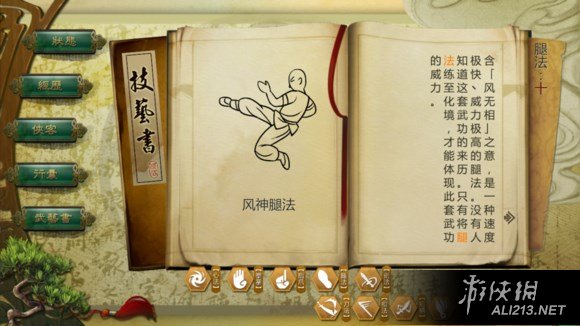 狀態
經歷
俠客
行囊
武藝書
技藝書
风神腿法
腿法：十
含「风无相」之意，是一种速度
极快、威力极高的腿法。没有人
知道这套武功的来历。只有将腿
法练至化境，才能体现此套武功
的威力。
游侠网
ALI213.NET